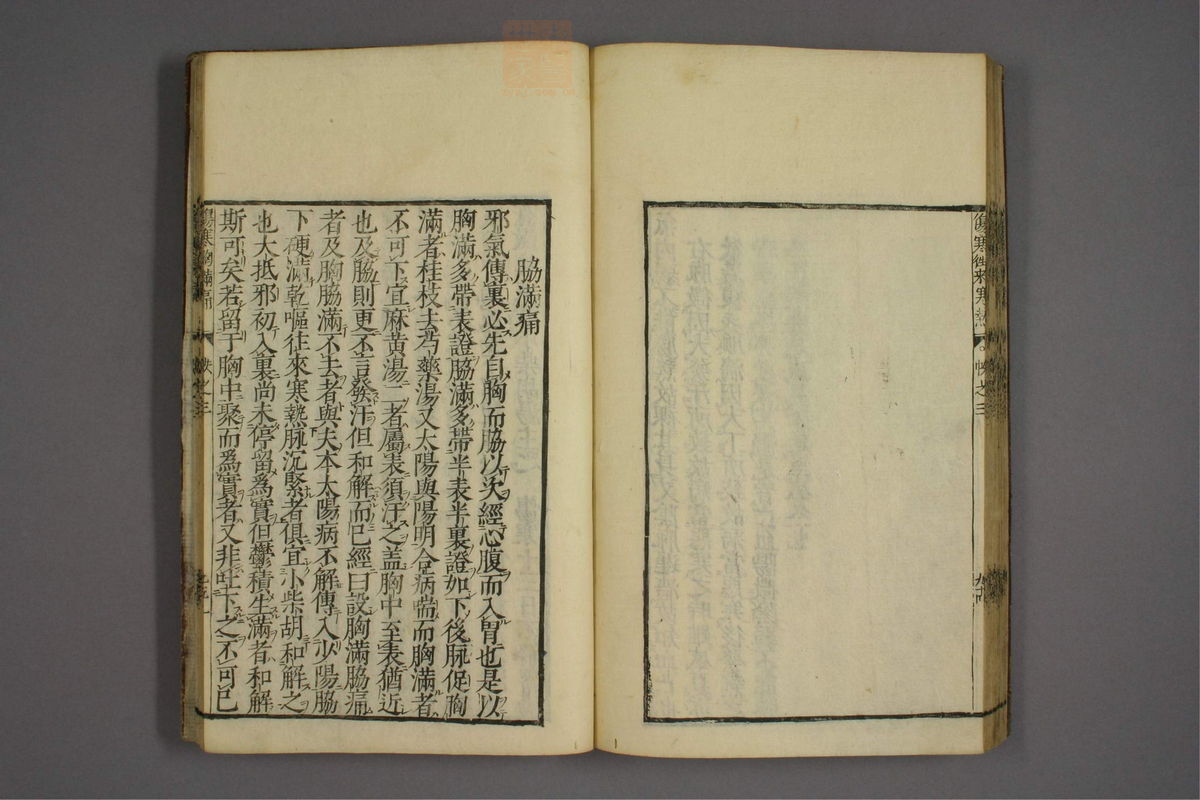 傷寒往來寒熱
帙之三
九十四
脇滿痛
邪氣傳裏必先自胸而脇以次經心腹而入胃也是以
胸滿多帶表證脇滿多帶半表半裏證如下後脉促胸
滿者桂枝去芍藥湯又太陽與陽明合病喘而胸滿者
不可下宜麻黃湯二者屬表須汗之盖胸中至表猶近
也及脇則更不言發汗但和解而已經曰設胸滿脇痛
者及胸脇滿不去者與夫本太陽病不解傳入少陽脇
下硬滿乾嘔往來寒熱脉沉緊者俱宜小柴胡和解之
也大抵邪初入裏尚未停留爲實但鬱積生滿者和解
斯可矣若留于胸中聚而爲實者又非吐下之不可已
傷寒胸滿痛
帙之三